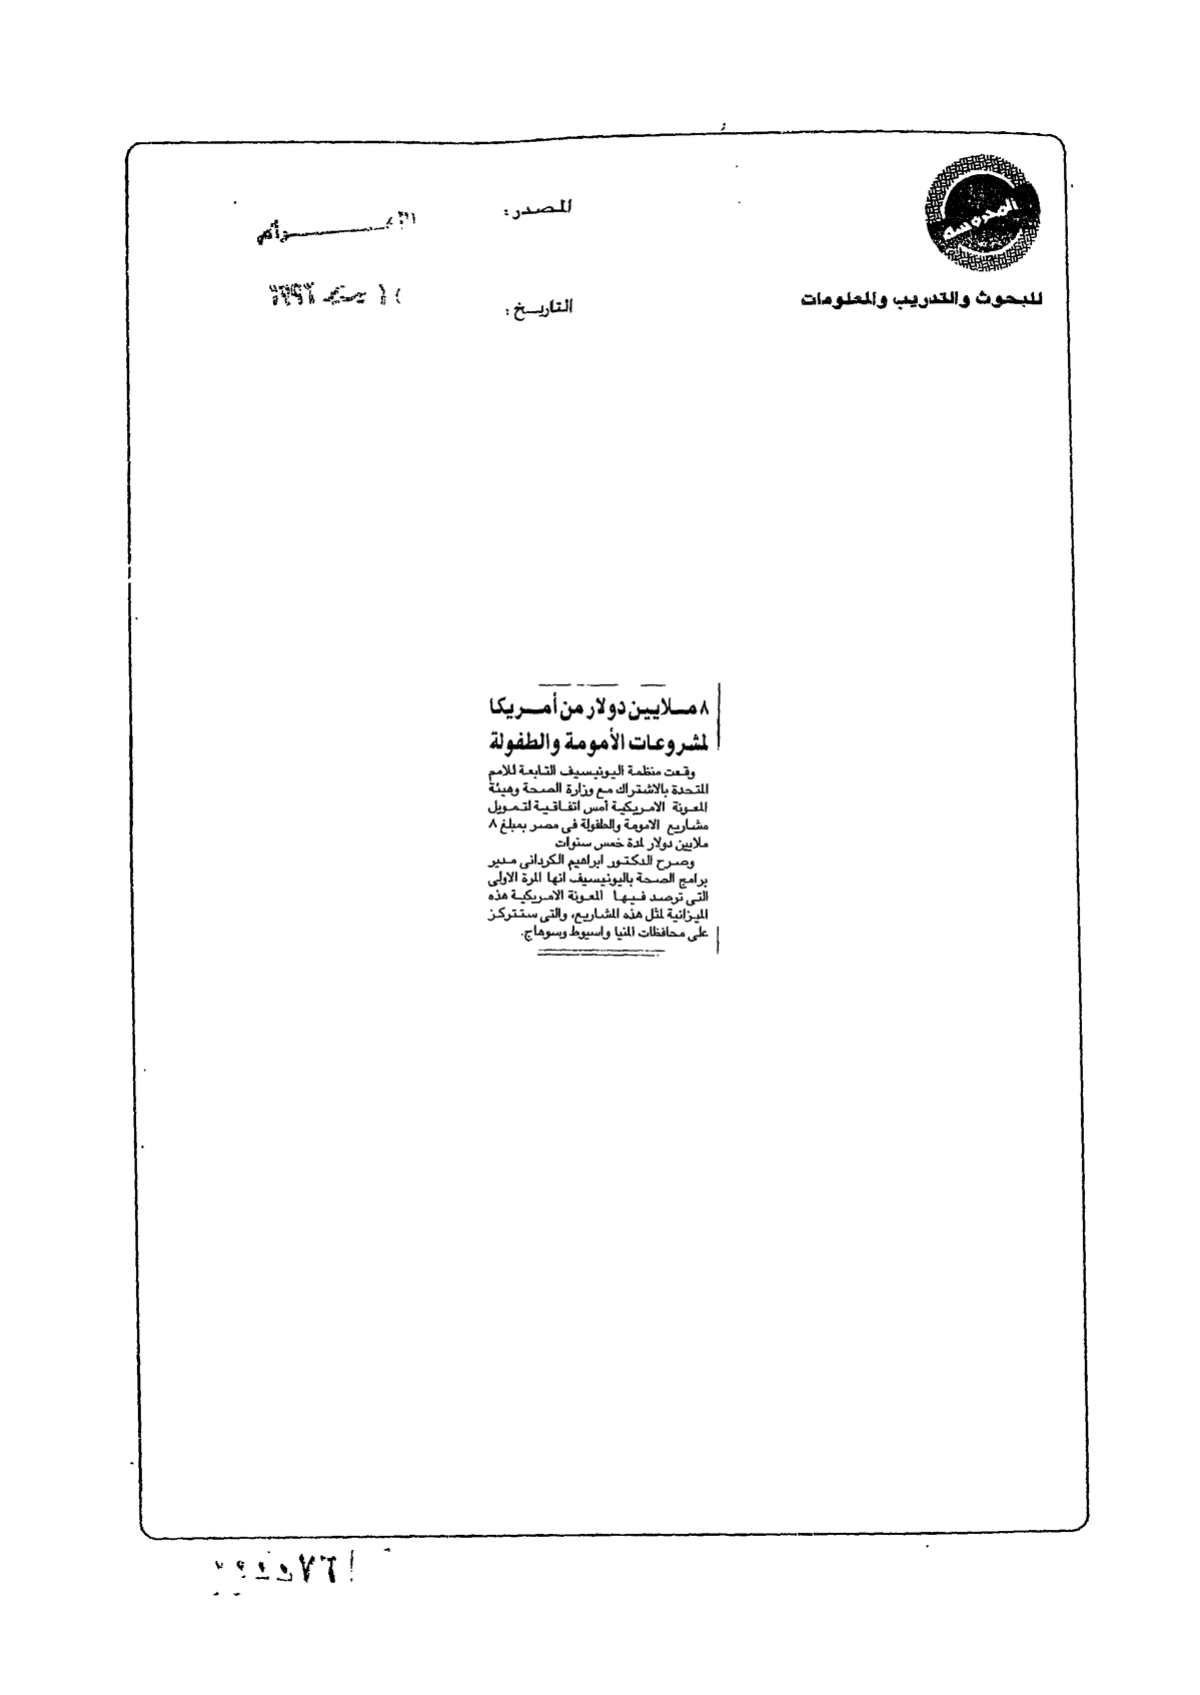 المحروسة
للبحوث والتدريب والمعلومات
المصدر:
التاريخ:
٨ مـلايين دولار من أمـريكا
لمشروعات الأمومة والطفولة
وقعت منظمة اليونيسيف التابعة للامم
المتحدة بالاشتراك مع وزارة الصحة وهيئة
المعونة الامريكية أمس اتفاقية لتمويل
مشاريع الامومة والطفولة فى مصر بمبلغ ٨
ملايين دولار لمدة خمس سنوات
وصرح الدكتور ابراهيم الكردانى مدير
برامج الصحة باليونيسيف انها المرة الاولى
التى ترصد فيها المعونة الامريكية هذه
الميزانية لمثل هذه المشاريع، والتى ستتركز
على محافظات المنيا واسيوط وسوهاج.